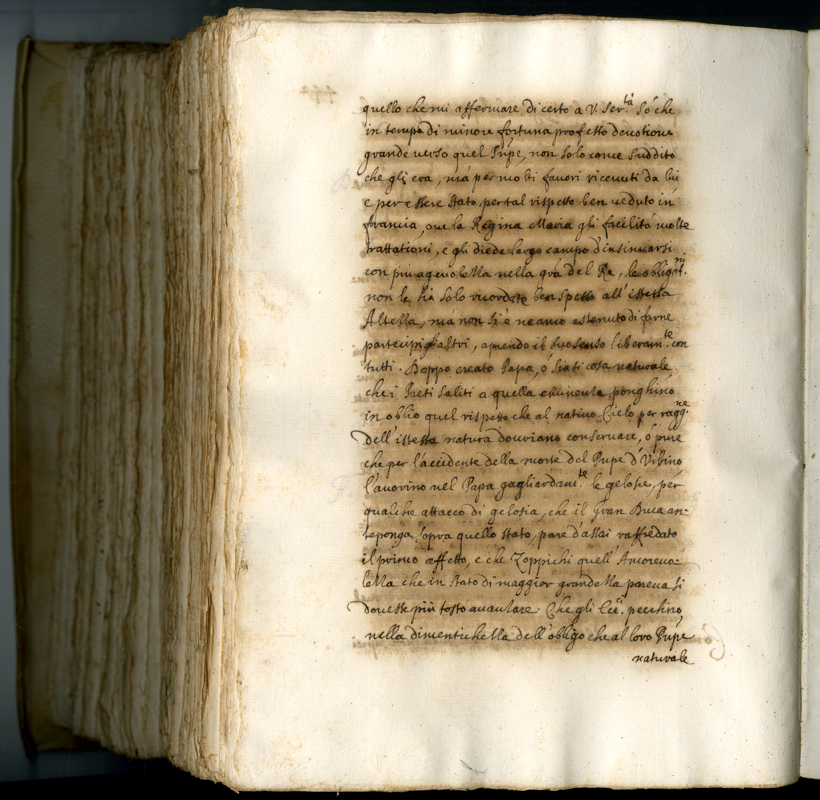 quello che mi affermare di certo a V. Ser.tà Sò che
in tempo di minore fortuna professò deuotione
grande uerso quel Prñpe, non solo come suddito
che gli era, mà per molti fauori riceuuti da lui
e per essere stato per tal rispetto ben ueduto in
francia, oue la Regina Maria gli facilitò molte
trattationi, e gli diede largo campo d'insinuarsi
con più ageuolezza nella grã del Re, le obligat.ni
non le hà solo ricordate ben spesso all'istessa
Altezza, mà non si è ne anco astenuto di farne
partecipi gl'altri, aprendo il suo senso liberam.te con
tutti. Doppo creato Papa, ò sia ti cosa naturale
che i Preti saliti a quella eminenza ponghino
in oblio quel rispetto che al natiuo Cielo per ragg.ne
dell'istessa natura douriano conseruare, ò pure
che per l'accidente della morte del Prñpe d'Vrbino
lauorino nel Papa gagliardam.te le gelosie, per
qualche attacco di gelosia, che il Gran Duca an-
teponga sopra quello stato, pare d'assai raffredato
il primo affetto, e che Zoppichi quell'Amoreuo-
lezza che in stato di maggior grandezza pareua si
douesse più tosto auanzare. Che gli Ecc.i pecchino
nella dimentichezza dell'obligo che al loro Prñpe
naturale